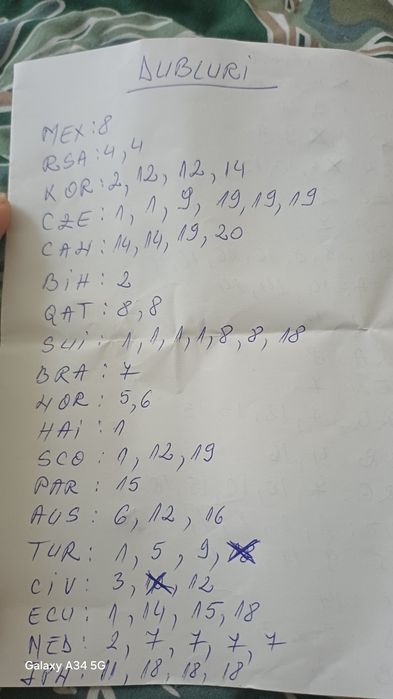 DUBLURI
MEX: 8
RSA: 4, 4
KOR: 2, 12, 12, 14
CZE: 1, 1, 9, 19, 19, 19
CAN: 14, 14, 19, 20
BiH: 2
QAT: 8, 8
SUi: 1, 1, 1, 1, 8, 8, 18
BRA: 7
MOR: 5, 6
HAi: 1
SCO: 1, 12, 19
PAR: 15
AUS: 6, 12, 16
TUR: 1, 5, 9,
CiV: 3, 12
ECU: 1, 14, 15, 18
NED: 2, 7, 7, 7, 7
JPN: 11, 18, 18, 18
Galaxy A34 5G